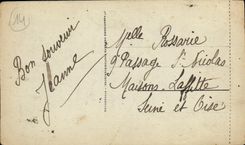 14
Bon souvenir
Jeanne
Melle Rossarie
9 Passage St Nicolas
Maisons Laffitte
Seine et Oise